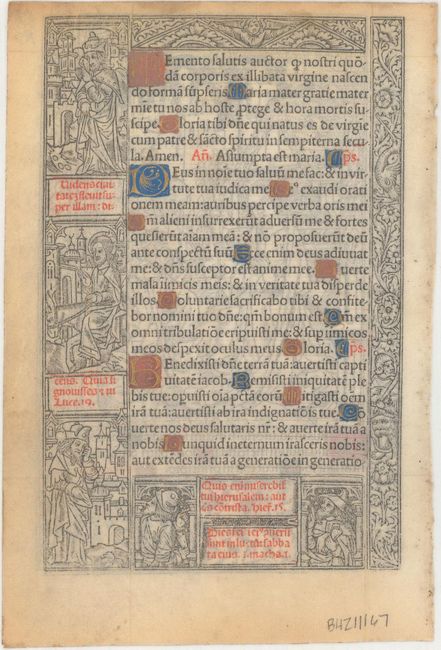 Memento salutis auctor ꝙ nostri quõ-
dã corporis ex illibata virgine nascen
do formã sũpseris. Maria mater gratie mater
mĩe tu nos ab hoste ꝓtege & hora mortis su-
scipe. Gloria tibi dñe qui natus es de virgĩe
cum patre & sãcto spiritu in sempiterna secu
la. Amen. Añ. Assumpta est maria. ps.
Deus in noĩe tuo saluũ me fac: & in vir-
tute tua iudica me. Deꝰ exaudi orati
onem meam: auribus percipe verba oris mei
Qm̃ alieni insurrexerũt aduersũ me & fortes
quesierũt aĩam meã: & nõ proposuerũt deũ
ante conspectũ suũ. Ecce enim deus adiuuat
me: & dñs susceptor est anime mee. Auerte
mala inimicis meis: & in veritate tua disperde
illos. Voluntarie sacrificabo tibi & confite-
bor nomini tuo dñe: qm̃ bonum est. Qm̃ ex
omni tribulatiõe eripuisti me: & sup inimicos
meos despexit oculus meus. Gloria. ps.
Benedixisti dñe terrã tuã: auertisti capti
uitatẽ iacob. Remisisti iniquitatẽ ple
bis tue: opuisti oĩa pctã eorũ. Mitigasti oem
irã tuã: auertisti ab ira indignatiõis tue. Con
uerte nos deus salutaris nr̃: & auerte irã tuã a
nobis. Nunquid in eternum irasceris nobis:
aut extẽdes irã tuã a generatiõe in generatio
Uidens ciui
tatẽ fleuit su
per illam: di-
cens. Quia si
cognouisses & tu
Luce. 19.
Quis enim miserebit
tui hierusalem: aut
qs cõtrista. hier. 15.
Dies festi eiꝰ ↄuersi
sunt in luctũ: sabba
ta eius. i. macha. i.
BHZ11167